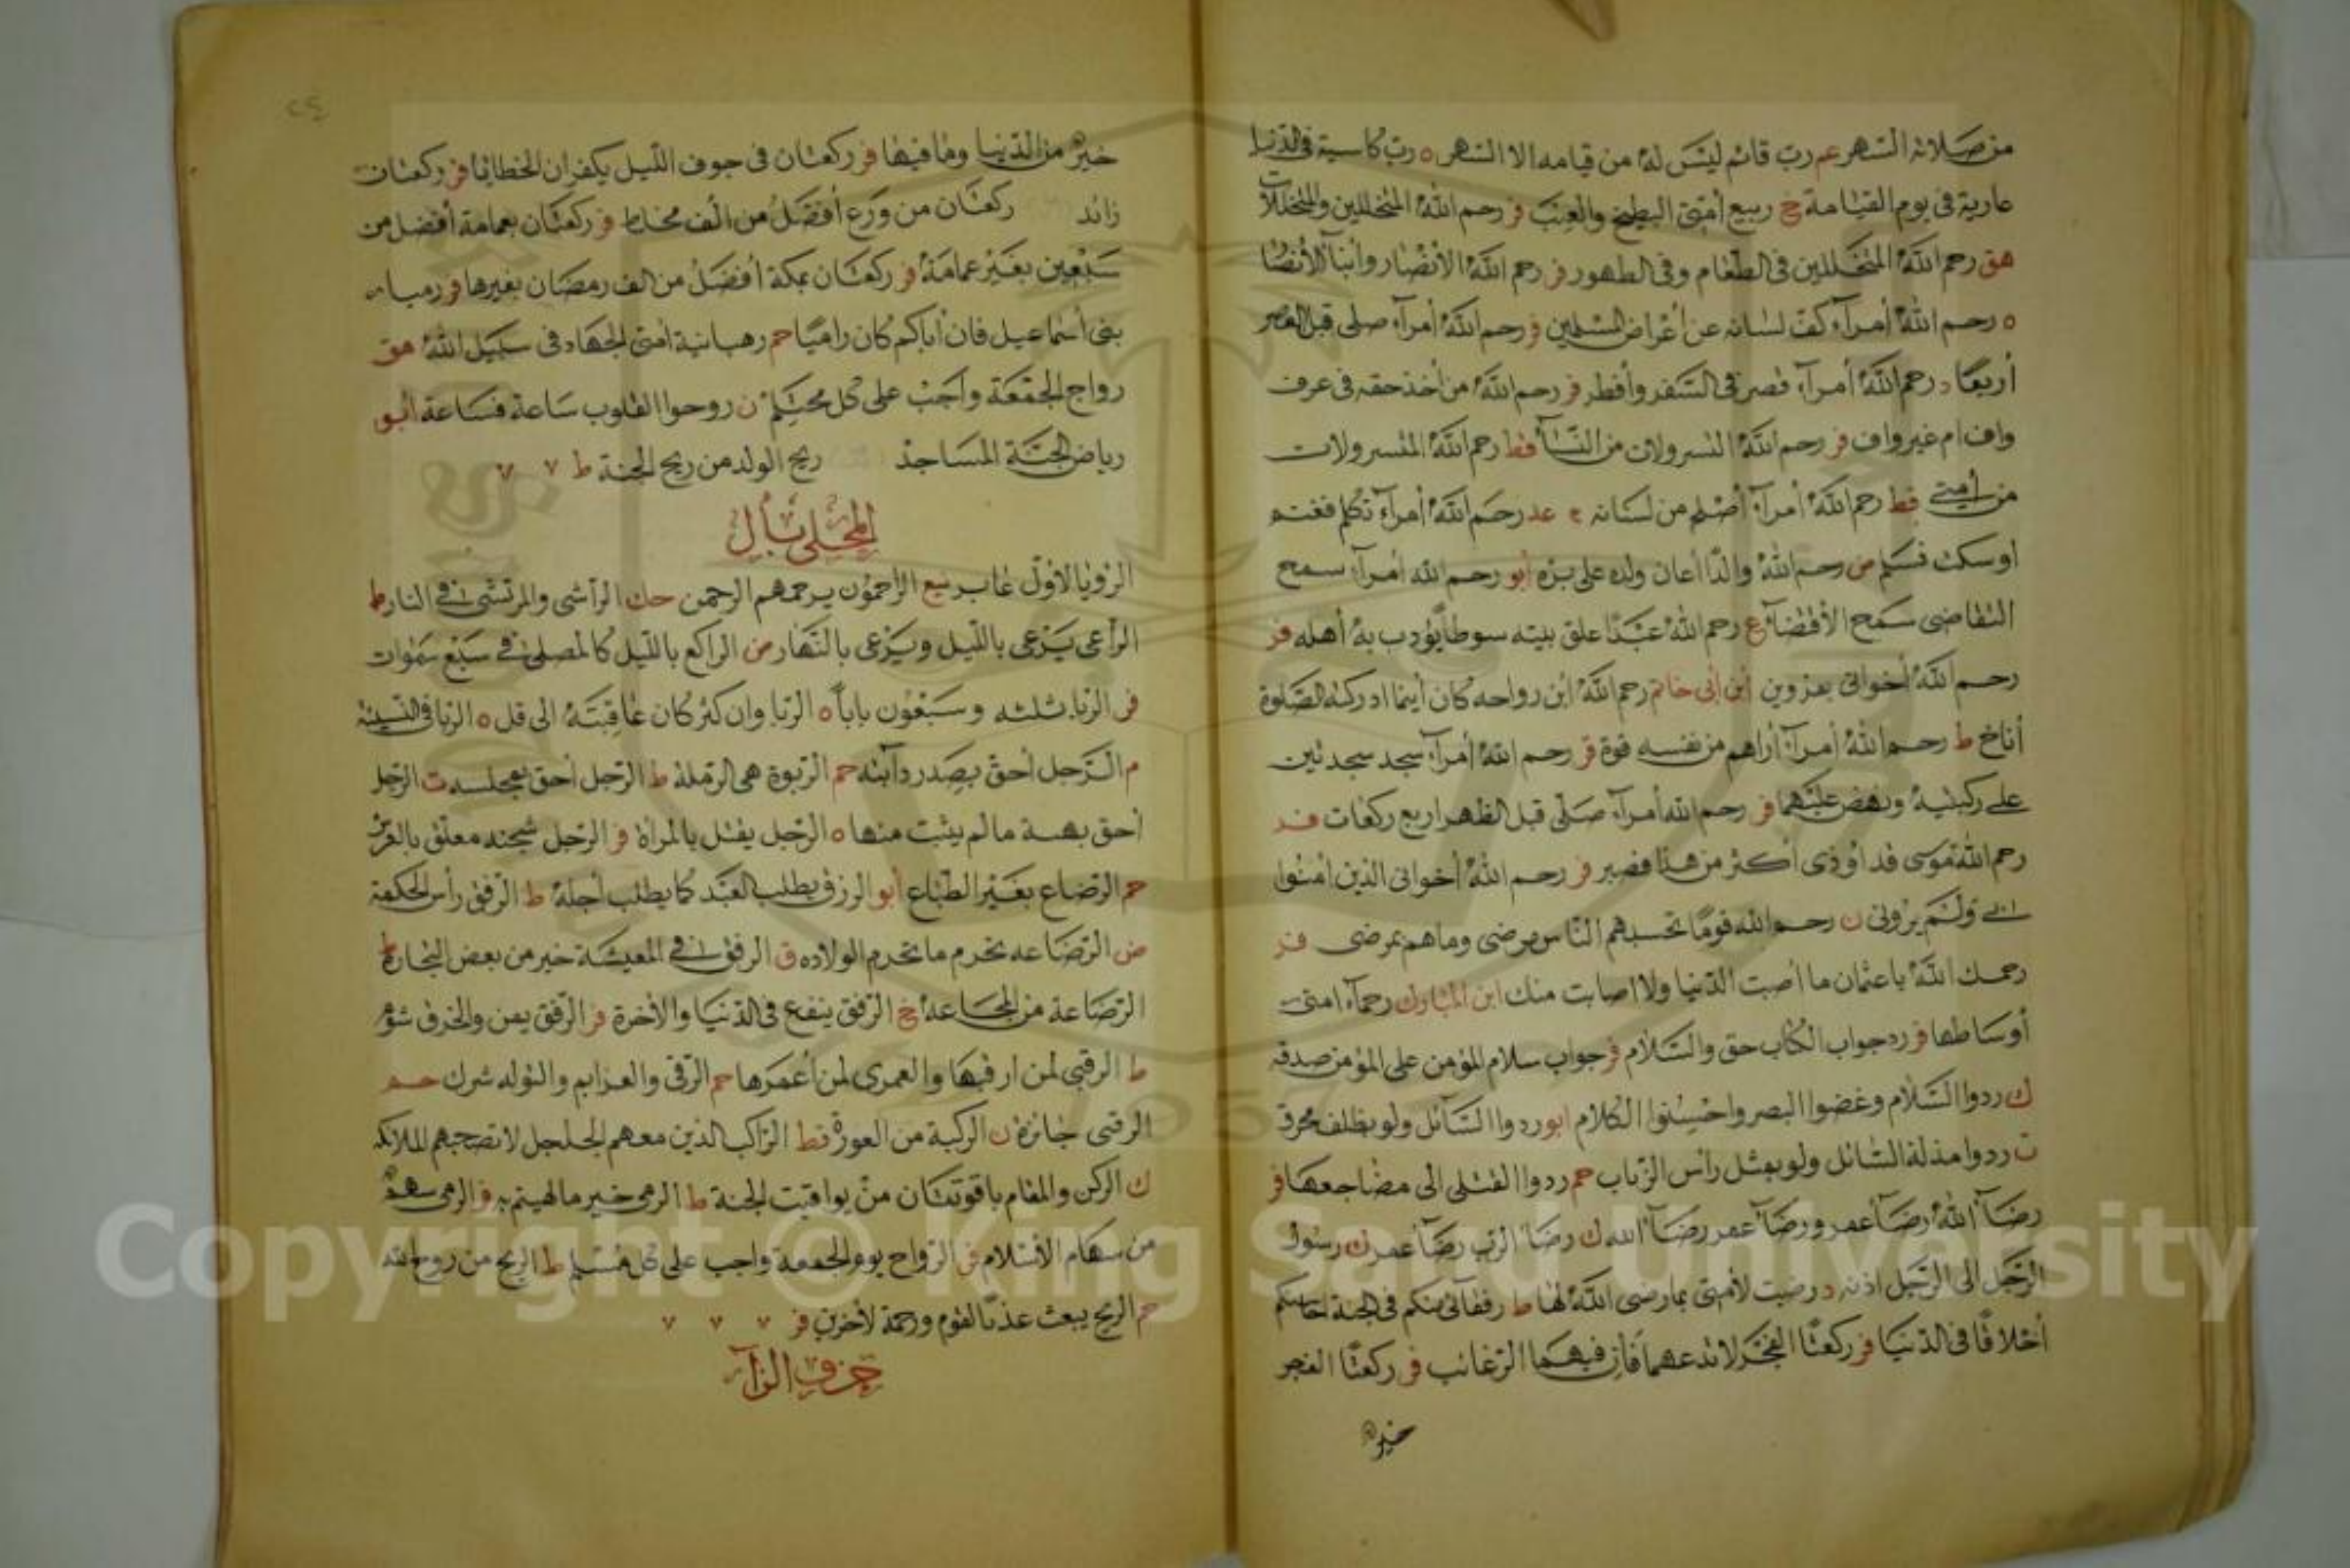 من صلاته السهر عم رب قائم ليس له من قيامه الا السهر ه رب كاسية في الدنيا
عارية في يوم القيامة خ ربيع أمتى البطيخ والعنب فر رحم الله المتخللين والمتخللات
هق رحم الله المتخللين في الطعام وفي الطهور فر رحم الله الأنصار وأبنآ الأنصا
ه رحم الله أمرآء كف لسانه عن أعراض المسلمين فر رحم الله أمرآء صلى قبل العصر
أربعا د رحم الله أمرآء قصر في السفر وأفطر فر رحم الله من أخذ حقه في عرف
واف ام غير واف فر رحم الله النسرولات من النسآء قط رحم الله المنسرولات
من أمتى قط رحم الله أمرآء أصلح من لسانه عد رحم الله أمرآء تكلم فغنم
أو سكت فسلم ض رحم الله والدا أعان ولده على بره أبو رحم الله أمرآء سمح
التقاضى سمح الأقضآء ع رحم الله عبدا علق بيته سوطا يؤدب به أهله فر
رحم الله أخوانى بقزوين ابن أبى حاتم رحم الله ابن رواحه كان أينما ادركته الصلوة
أناخ ط رحم الله أمرآء أراهم من نفسه قوة قر رحم الله أمرآء سجد سجدتين
على ركبتيه ونهض عليهما فر رحم الله أمرآء صلى قبل الظهر اربع ركعات فر
رحم الله موسى قد أوذى أكثر من هذا فصبر فر رحم الله أخوانى الذين امنوا
بى ولم يرونى ن رحم الله قوما تحسبهم الناس مرضى وما هم بمرضى فر
رحمك الله يا عثمان ما أصبت الدنيا ولا اصابت منك ابن المبارك رحمآء امتى
أوساطها فر رد جواب الكتاب حق والسلام فر جواب سلام المؤمن على المؤمن صدقة
ك ردوا السلام وغضوا البصر واحسنوا الكلام ابو ردوا السآئل ولو بظلف محرق
ت ردوا مذلة السائل ولو بمثل رأس الذباب حم ردوا القتلى الى مضاجعها فر
رضآء الله رضآء عمر ورضآء عمر رضآء الله ك رضآء الرب رضآء عمر ك رسول
الرجل الى الرجل اذنه د رضيت لأمتى بما رضى الله لها ط رفقآئى منكم في الجنة احاسنكم
أخلاقا في الدنيا فر ركعتا الفجر لا تدعهما فان فيهما الرغائب فر ركعتا الفجر
خير
٢٤
خير من الدنيا وما فيها فر ركعتان في جوف الليل يكفران الخطايا فر ركعتان
زائد ركعتان من ورع أفضل من الف مخلط فر ركعتان بعمامة أفضل من
سبعين بغير عمامة فر ركعتان بمكة أفضل من الف رمضان بغيرها فر رميا
بنى أسماعيل فان أباكم كان راميا حم رهبانية امتى الجهاد في سبيل الله هق
رواح الجمعة واجب على كل محتلم ن روحوا القلوب ساعة فساعة أبو
رياض الجنة المساجد ريح الولد من ريح الجنة ط ٧ ٧
المحلى بأل
الرؤيا لأول عابر يع الراحمون يرحمهم الرحمن حك الراشى والمرتشى في النار ط
الراعى يرعى بالليل ويرعى بالنهار من الراكع بالليل كالمصلى في سبع سموات
فر الربا ثلثه وسبعون بابا ه الربا وان كثر كان عاقبته الى قل ه الربا في النسيئة
م الرجل أحق بصدر دآبته حم الربوة هى الرملة ط الرجل أحق بمجلسه ت الرجل
أحق بهبة ما لم يثبت منها ه الرجل يقتل بالمرأة فر الرجل شجنه معلق بالعرش
حم الرضاع بغير الطباع أبو الرزق يطلب العبد كما يطلب أجله ط الرفق رأس الحكمة
ض الرضاعه تحرم ما تحرم الولاده ق الرفق في المعيشة خير من بعض التجارة ط
الرضاعة من المجاعه خ الرفق ينفع في الدنيا والأخرة فر الرفق يمن والخرق شؤم
ط الرقبى لمن ارقبها والعمرى لمن أعمرها حم الرقى والعزايم والتوله شرك حم
الرقبى جائزة ن الركبة من العورة قط الراكب الذين معهم الجلجل لا تصحبهم الملائكه
ك الركن والمقام ياقوتتان من يواقيت الجنة ط الرمى خير ما لهيتم به فر الرمى سهم
من سهام الأسلام فر الرواح يوم الجمعة واجب على كل مسلم ط الريح من روح الله
حم الريح يبعث عذبا لقوم ورحمة لأخرين فر ٧ ٧ ٧
حرف الزآء
Copyright © King Saud University
1957